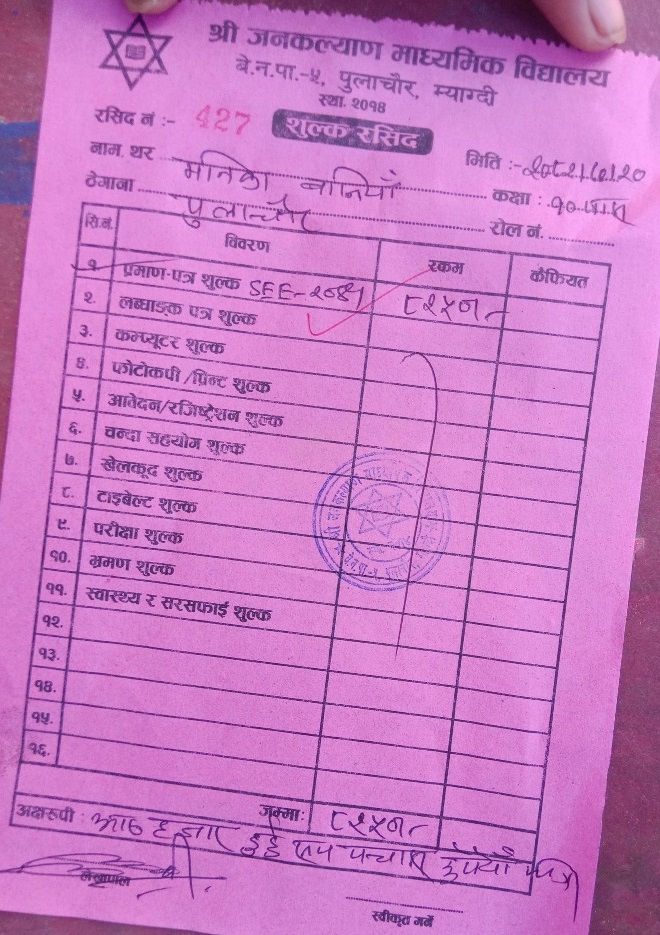 श्री जनकल्याण माध्यमिक विद्यालय
बे.न.पा.-५, पुलाचौर, म्याग्दी
स्था. २०१४
रसिद नं :- 427 शुल्क रसिद
मिति :- २०८२।६।२०
नाम. थर मनिका बानियाँ कक्षा : १०
ठेगाना पुलाचौर रोल नं.
सि.नं. विवरण रकम कैफियत
१. प्रमाण-पत्र शुल्क SEE-२०८१ ८२५०।-
२. लब्धाङ्क पत्र शुल्क
३. कम्प्यूटर शुल्क
४. फोटोकपी /प्रिन्ट शुल्क
५. आवेदन/रजिष्ट्रेशन शुल्क
६. चन्दा सहयोग शुल्क
७. खेलकूद शुल्क
८. टाइबेल्ट शुल्क
९. परीक्षा शुल्क
१०. भ्रमण शुल्क
११. स्वास्थ्य र सरसफाई शुल्क
१२.
१३.
१४.
१५.
१६.
जम्मा: ८२५०।-
अक्षरूपी : आठ हजार दुई सय पचास रुपैयाँ मात्र
लेखापाल
स्वीकृत गर्ने